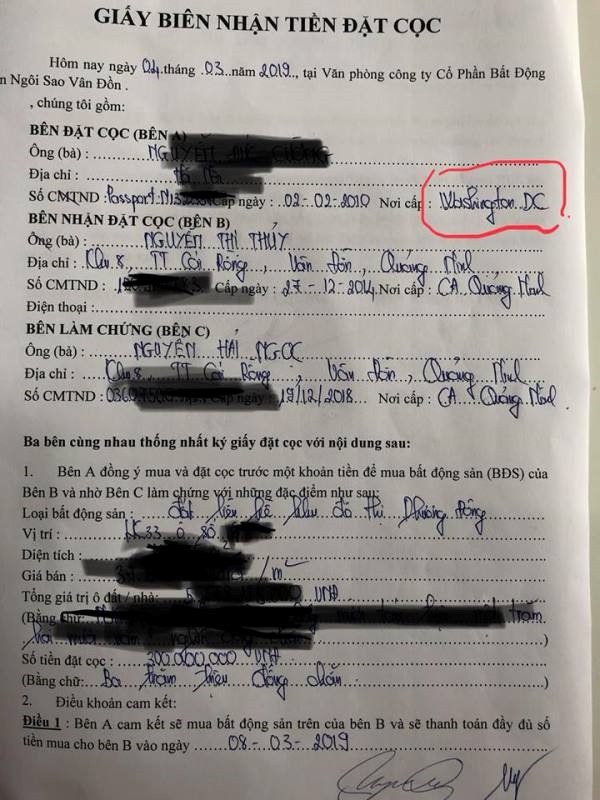 GIẤY BIÊN NHẬN TIỀN ĐẶT CỌC
Hôm nay ngày 04 tháng .03..năm 2019.., tại Văn phòng công ty Cổ Phần Bất Động
n Ngôi Sao Vân Đồn .
, chúng tôi gồm:
BÊN ĐẶT CỌC (BÊN A)
Ông (bà) : NGUYỄN
Địa chỉ :
Số CMTND : Passport Cấp ngày : 02-02-2010 Nơi cấp : Washington DC
BÊN NHẬN ĐẶT CỌC (BÊN B)
Ông (bà) : NGUYỄN THỊ THỦY
Địa chỉ : Khu 8, TT Cái Rồng, Vân Đồn, Quảng Ninh
Số CMTND : Cấp ngày : 27-12-2014 Nơi cấp : CA Quảng Ninh
Điện thoại :
BÊN LÀM CHỨNG (BÊN C)
Ông (bà) : NGUYỄN HẢI NGỌC
Địa chỉ : Khu 8, TT Cái Rồng, Vân Đồn, Quảng Ninh
Số CMTND : 19/12/2018 Nơi cấp : CA Quảng Ninh
Ba bên cùng nhau thống nhất ký giấy đặt cọc với nội dung sau:
1. Bên A đồng ý mua và đặt cọc trước một khoản tiền để mua bất động sản (BĐS) của
Bên B và nhờ Bên C làm chứng với những đặc điểm như sau:
Loại bất động sản : đất liền kề khu đô thị Phương Đông
Vị trí : LK33 ô số
Diện tích :
Giá bán : /m²
Tổng giá trị ô đất / nhà: VNĐ
(Bằng chữ: trăm
)
Số tiền đặt cọc : 300.000.000 VNĐ
(Bằng chữ: Ba trăm triệu đồng chẵn )
2. Điều khoản cam kết:
Điều 1 : Bên A cam kết sẽ mua bất động sản trên của bên B và sẽ thanh toán đầy đủ số
tiền mua cho bên B vào ngày 08-03-2019